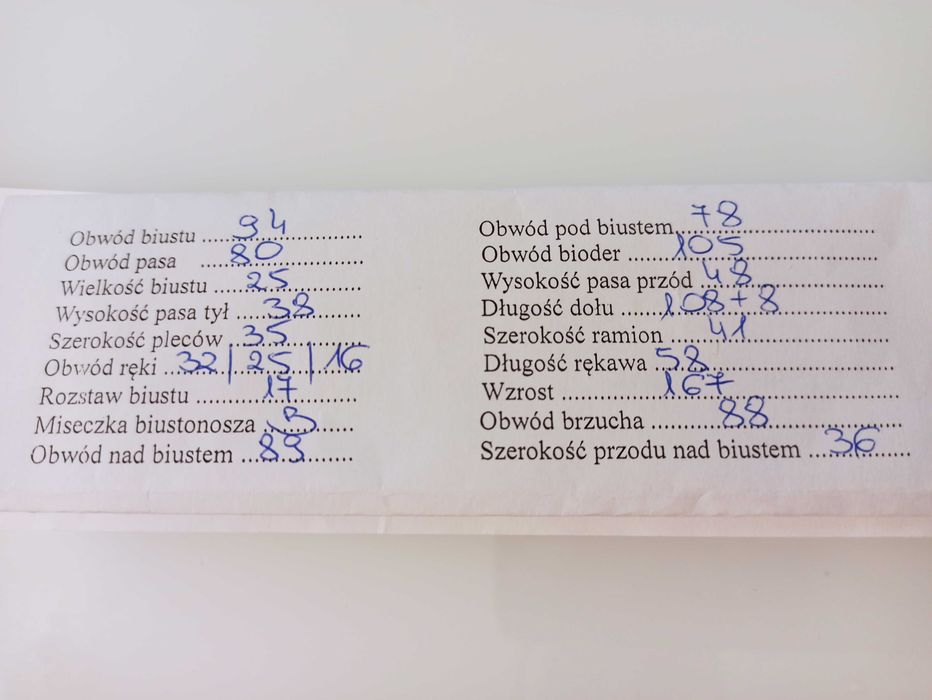 Obwód biustu ... 94 ...
Obwód pasa ... 80 ...
Wielkość biustu ... 25 ...
Wysokość pasa tył ... 38 ...
Szerokość pleców ... 35 ...
Obwód ręki ... 32 | 25 | 16
Rozstaw biustu ... 17 ...
Miseczka biustonosza ... B ...
Obwód nad biustem ... 89 ...
Obwód pod biustem ... 78 ...
Obwód bioder ... 105 ...
Wysokość pasa przód ... 48 ...
Długość dołu ... 108+8 ...
Szerokość ramion ... 41 ...
Długość rękawa 58 ...
Wzrost ... 167 ...
Obwód brzucha ... 88 ...
Szerokość przodu nad biustem ... 36 ...